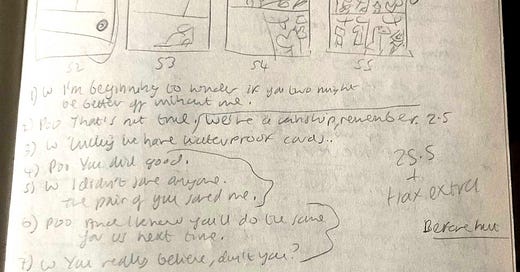 S2 S3 S4 S5
1) W I'm beginning to wonder if you two might
be better off without me.
2) Poo That's not true, we're a township, remember. 2.5
3) W Lucky we have waterproof cards..
4) Poo You did good.
5) W I didn't save anyone.
The pair of you saved me.
6) Poo And I know you'll do the same
for us next time.
7) W You really believe, don't you?
25.5
+
extra